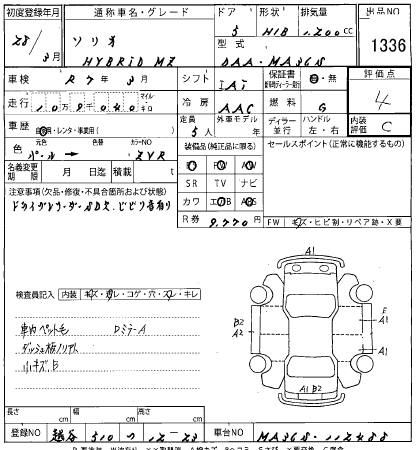 初度登録年月 通称車名・グレード ドア 形状 排気量 出品NO
28/3月 ソリオ HYBRID MZ 5 H/B 1,200cc 1336
型式 DAA-MA36S
車検 R7年3月 シフト IAT 保証書 有・無 評価点 4
走行 109,040 マイル・キロ 冷房 AAC 燃料 G
車歴 自家用・レンタ・事業用( ) 定員 5人 外車モデル 年 ディーラー 並行 ハンドル 左・右 内装評価 C
色 元色 パール → 色替 カラーNO ZVR 装備品(純正品に限る) セールスポイント(正常に機能するもの)
名義変更期限 月 日迄 積載 t PS PW AW
SR TV ナビ
注意事項(欠品・修復・不具合箇所および状態) カワ エアB ABS
R券 9,770円
FW キズ・ヒビ割・リペア跡・X要
検査員記入 内装 キズ・汚レ・コゲ・穴・スレ・キレ
車内ペット毛 DミラーA
ダッシュ板ノリアト
小キズB
A1
B2 A2
E A1
A1
A1 B2
長さ cm 幅 cm 高さ cm
登録NO 越谷 510 つ 12-23 車台NO MA36S-112488